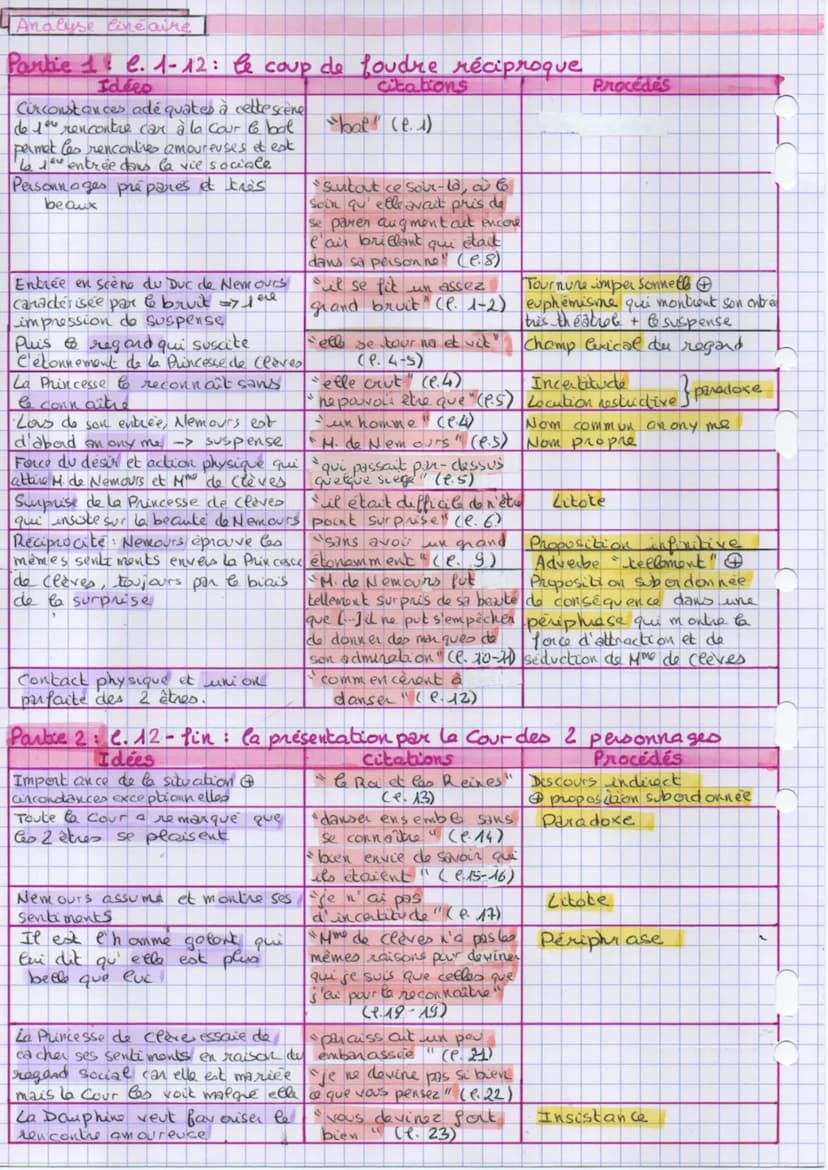 Analyse linéaire
Partie 1 : l. 1-12 : le coup de foudre réciproque
Idées
Citations
Procédés
Circonstances adéquates à cette scène
de 1ère rencontre car à la Cour le bal
permet les rencontres amoureuses et est
la 1ère entrée dans la vie sociale
"bal" (l.1)
Personnages préparés et très
beaux
"surtout ce soir-là, où le
soin qu'elle avait pris de
se parer augmentait encore
l'air brillant qui était
dans sa personne" (l.8)
Entrée en scène du Duc de Nemours
caractérisée par le bruit => 1ère
impression de suspense
"il se fit un assez
grand bruit" (l. 1-2)
Tournure impersonnelle ⊕
euphémisme qui montrent son entrée
très théâtrale + le suspense
Puis le regard qui suscite
l'étonnement de la Princesse de Clèves
"elle se tourna et vit"
(l. 4-5)
Champ lexical du regard
La Princesse le reconnaît sans
le connaître
"elle crut" (l.4)
"ne pouvoir être que" (l.5)
Incertitude
Locution restrictive } paradoxe
Lors de son entrée, Nemours est
d'abord anonyme -> suspense
"un homme" (l.4)
"M. de Nemours" (l.5)
Nom commun anonyme
Nom propre
Force du désir et action physique qui
attire M. de Nemours et Mme de Clèves
"qui passait par-dessus
quelque siège" (l.5)
Surprise de la Princesse de Clèves
qui insiste sur la beauté de Nemours
"il était difficile de n'être
point surprise" (l. 6)
Litote
Réciprocité : Nemours éprouve les
mêmes sentiments envers la Princesse
de Clèves, toujours par le biais
de la surprise
"sans avoir un grand
étonnement" (l. 9)
"M. de Nemours fut
tellement surpris de sa beauté
que [...] il ne put s'empêcher
de donner des marques de
son admiration" (l. 10-11)
Proposition infinitive
Adverbe "tellement" ⊕
Proposition subordonnée
de conséquence dans une
périphrase qui montre la
force d'attraction et de
séduction de Mme de Clèves
Contact physique et union
parfaite des 2 êtres.
"commencèrent à
danser" (l.12)
Partie 2 : l. 12 - fin : la présentation par la Cour des 2 personnages
Idées
Citations
Procédés
Importance de la situation ⊕
circonstances exceptionnelles
"le Roi et les Reines"
(l. 13)
Discours indirect
⊕ proposition subordonnée
Toute la Cour a remarqué que
les 2 êtres se plaisent
"danser ensemble sans
se connaître" (l.14)
"bien envie de savoir qui
ils étaient" (l.15-16)
Paradoxe
Nemours assume et montre ses
sentiments
"je n'ai pas
d'incertitude" (l. 17)
Litote
Il est l'homme galant, qui
lui dit qu'elle est plus
belle que lui
"Mme de Clèves n'a pas les
mêmes raisons pour deviner
qui je suis que celles que
j'ai pour la reconnaître"
(l.18-19)
Périphrase
La Princesse de Clèves essaie de
cacher ses sentiments en raison du
regard social car elle est mariée
mais la Cour les voit malgré elle
"paraissait un peu
embarassée" (l. 21)
"je ne devine pas si bien
ce que vous pensez" (l.22)
La Dauphine veut favoriser la
rencontre amoureuse
"vous devinez fort
bien" (l. 23)
Insistance